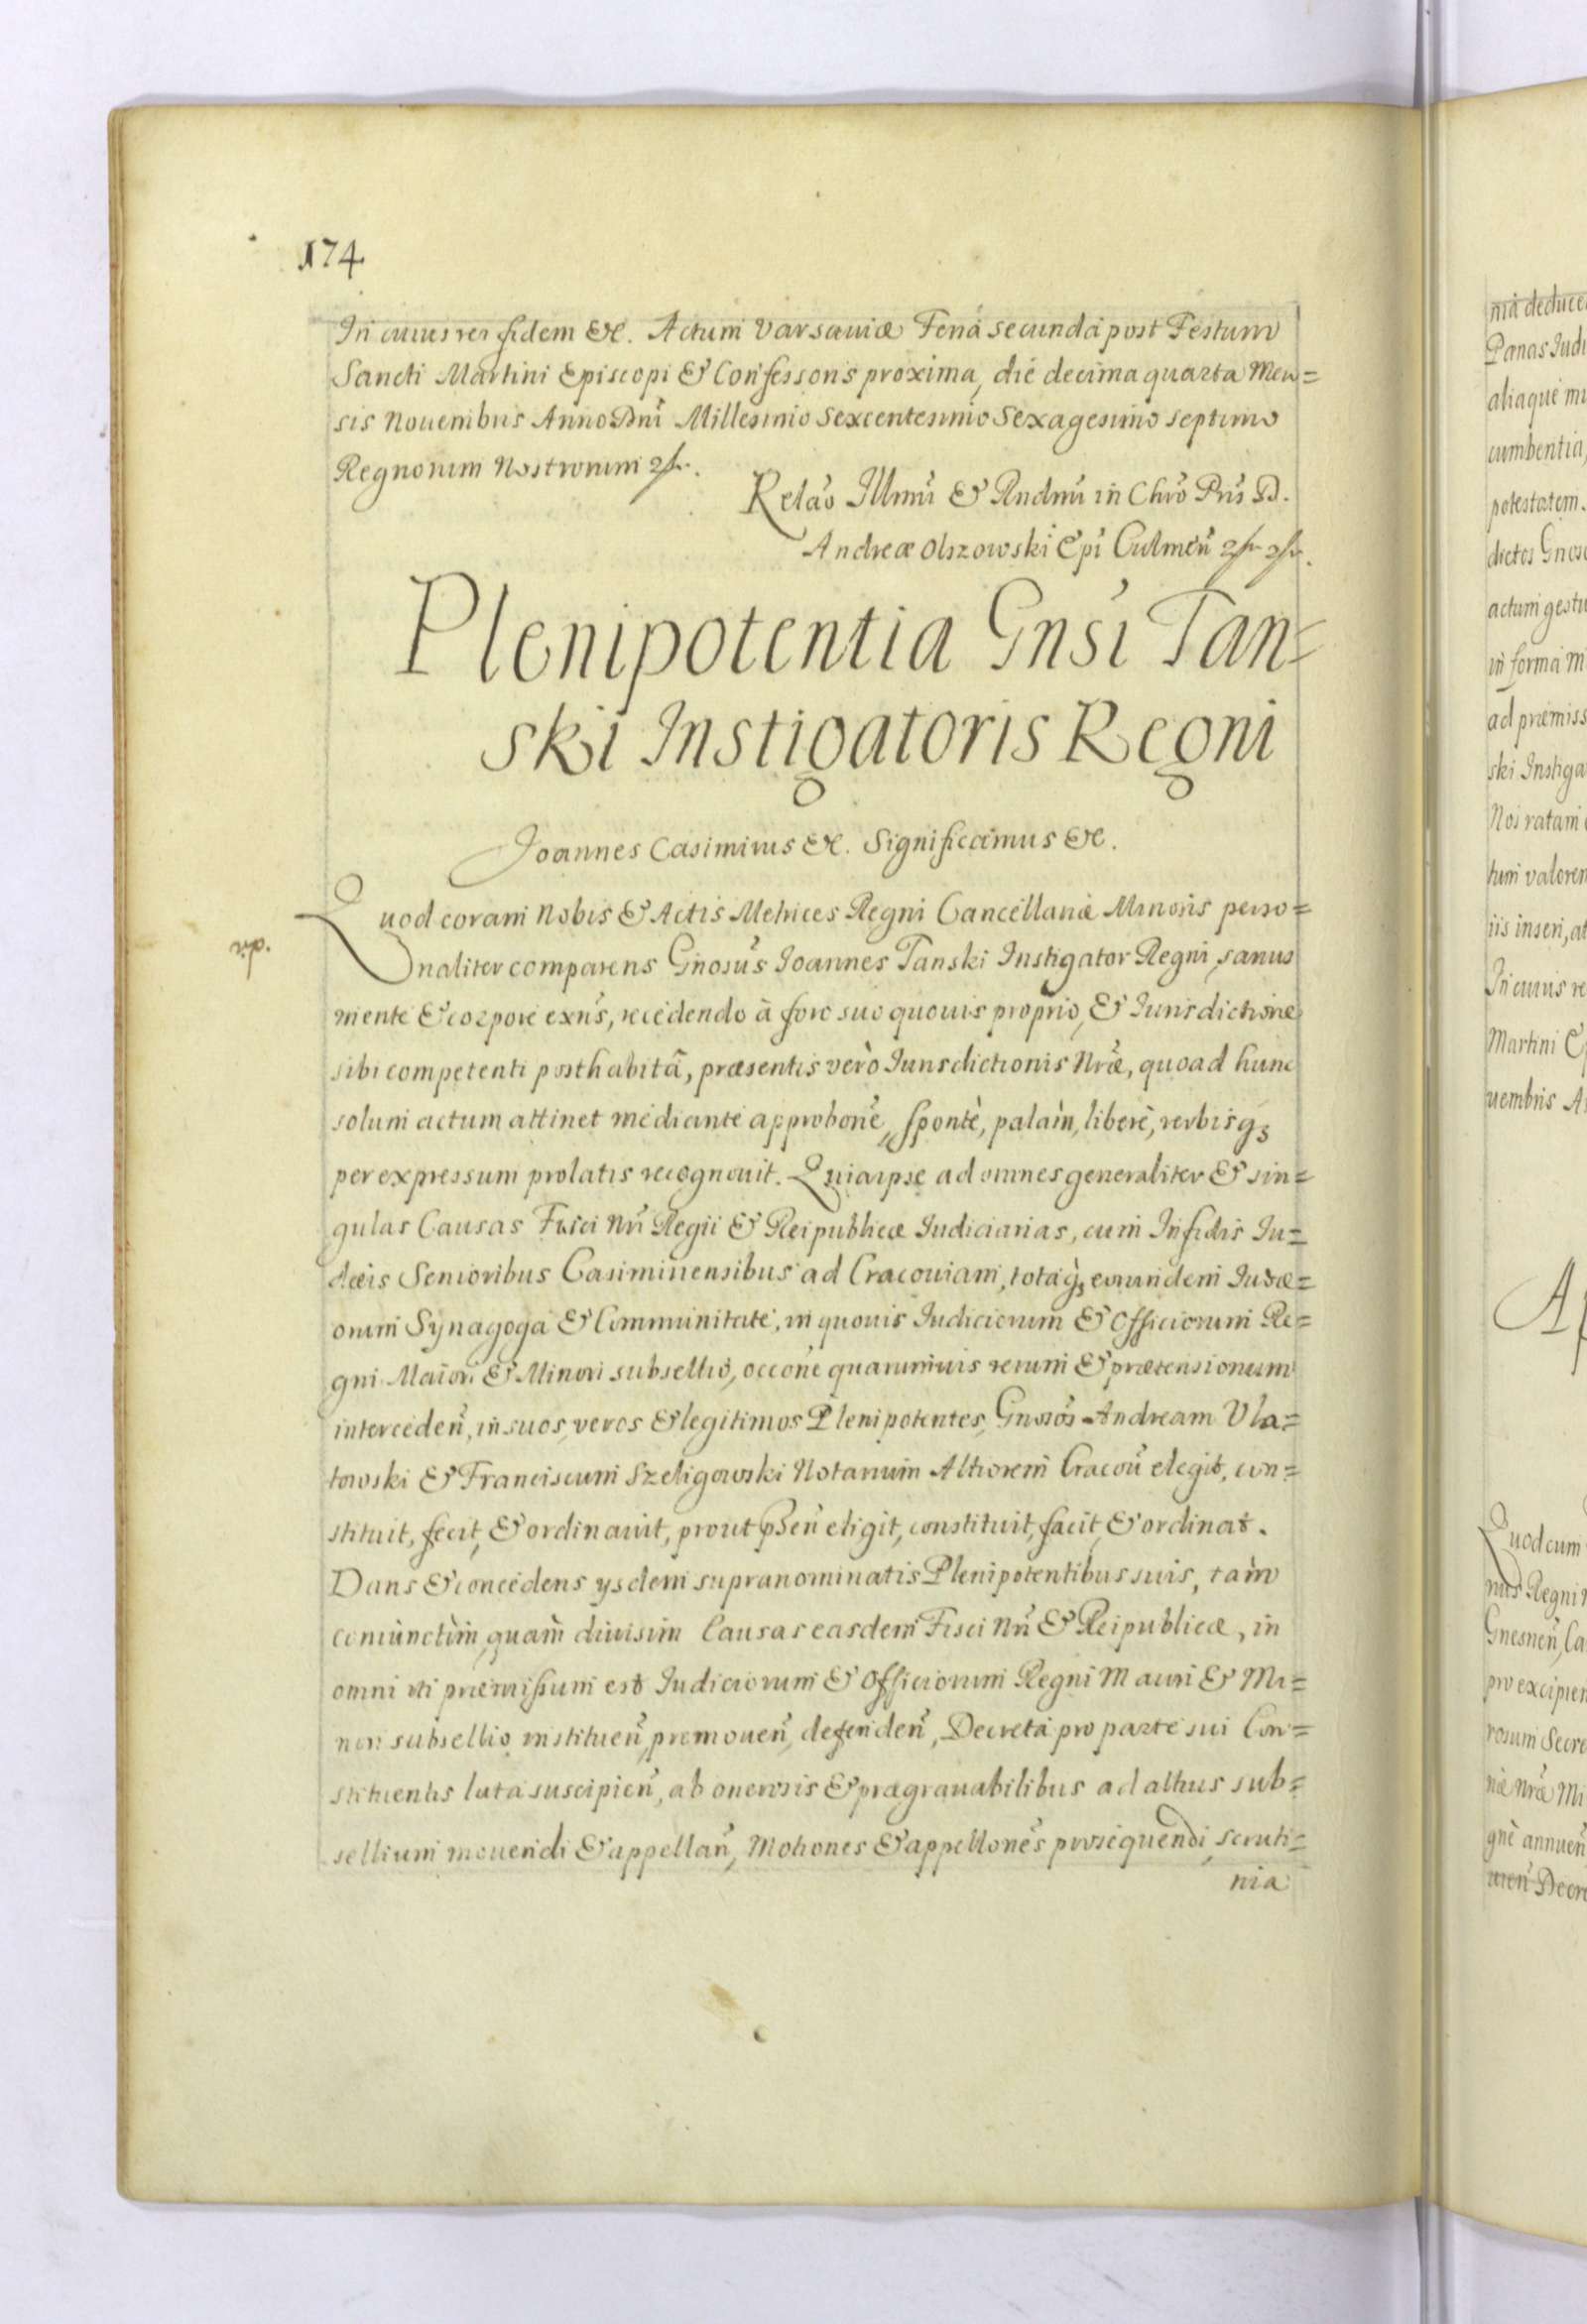 174
In cuius rei fidem &c. Actum Varsauiæ Feria secunda post Festum
Sancti Martini Episcopi & Confessoris proxima, die decima quarta Men=
sis Nouembris Anno Dni Millesimo Sexcentesimo Sexagesimo septimo
Regnorum Nostrorum
Relao Illmi & Rndmi in Chro Pris D.
Andreæ Olszowski Epi Culmen
Plenipotentia Gnsi Tan=
ski Instigatoris Regni
Joannes Casimirus &c. Significamus &c.
Quod coram Nobis & Actis Metrices Regni Cancellariæ Minoris perso=
naliter comparens Gnosus Joannes Tanski Instigator Regni, sanus
mente & corpore exns, recedendo à foro suo quouis proprio, & Iurisdictione
sibi competenti posthabitâ, præsentis verò Iurisdictionis Nræ, quoad hunc
solum actum attinet mediante approbone, sponte, palàm, liberè, verbisq;
per expressum prolatis recognouit. Quia ipse ad omnes generaliter & sin=
gulas Causas Fisci Nri Regii & Reipublicæ Iudiciarias, cum Infidis Iu=
dæis Senioribus Casimiriensibus ad Cracouiam, totaq; eorundem Iudæ=
orum Synagoga & Communitate, in quouis Iudiciorum & Officiorum Re=
gni Maiori & Minori subsellio, occone quarumuis rerum & prætensionum
interceden, in suos, veros & legitimos Plenipotentes, Gnosos Andream Vla=
towski & Franciscum Szeligowski Notarium Altiorem Cracou elegit, con=
stituit, fecit, & ordinauit, prout pñsen eligit, constituit, facit, & ordinat.
Dans & concedens ysdem supranominatis Plenipotentibus suis, tàm
coniunctìm, quàm diuisim Causas easdem Fisci Nri & Reipublicæ, in
omni uti præmissum est Iudiciorum & Officiorum Regni Maiori & Mi=
nori subsellio instituen, promouen, defenden, Decreta pro parte sui Con=
stituentis lata suscipien, ab onerosis & prægrauabilibus ad altius sub=
sellium mouendi & appellan, Motiones & appellones prosequendi, scruti=
nia